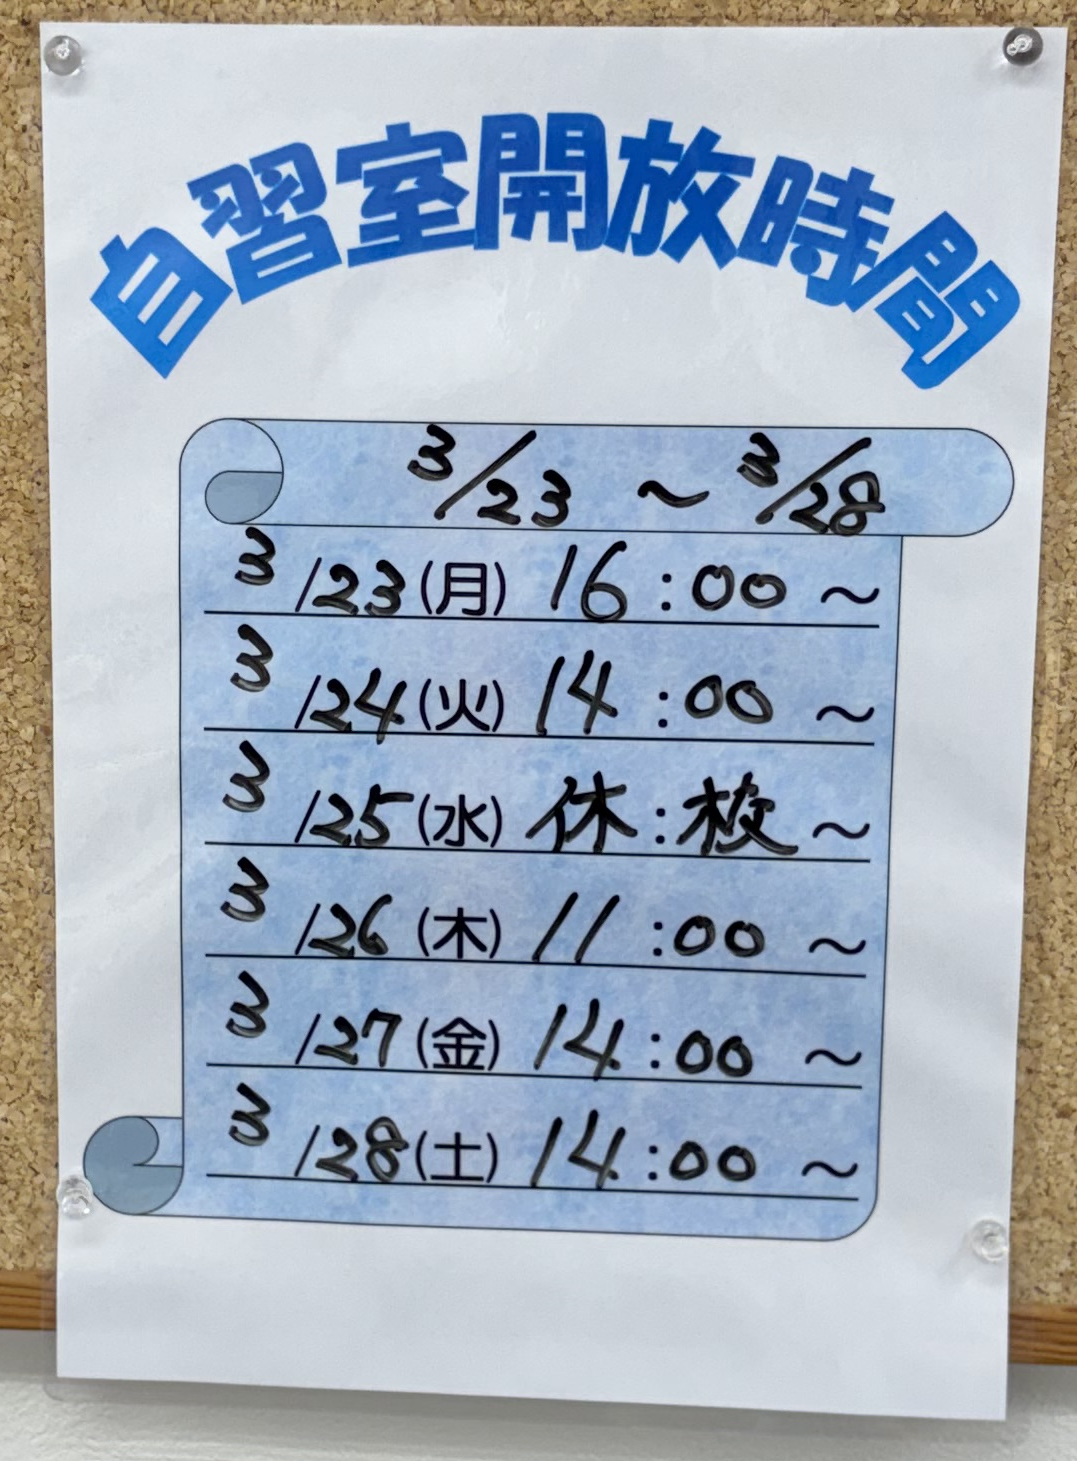 自習室開放時間
3/23 ~ 3/28
3/23(月) 16:00~
3/24(火) 14:00~
3/25(水) 休:校~
3/26(木) 11:00~
3/27(金) 14:00~
3/28(土) 14:00~